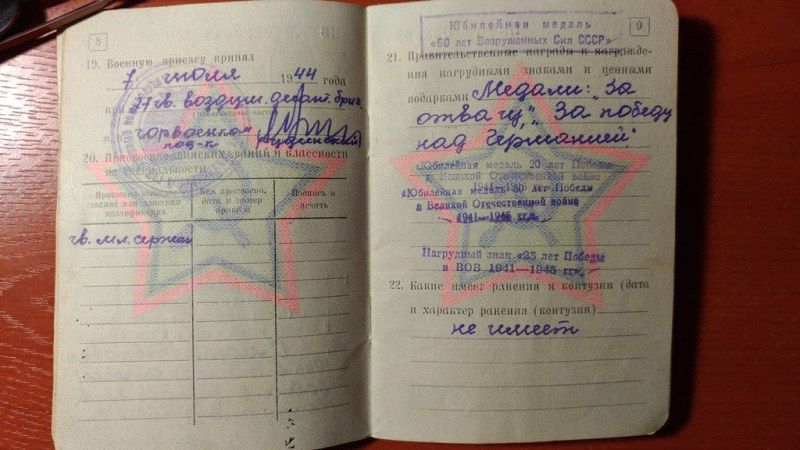 8
19. Военную присягу принял
7 июля 1944 года
гв. воздуш. десант. бриг.
горвоенком
под-п
20. Присвоение воинских званий и классности
по специальности
Присвоено воинское
звание или классная
квалификация
Кем присвоено,
дата и номер
приказа
Подпись и
печать
гв. мл. сержан
9
Юбилейная медаль
«60 лет Вооруженных Сил СССР»
21. Правительственные награды и награжде-
ния нагрудными знаками и ценными
подарками Медали: „За
отвагу", „За победу
над Германией"
Юбилейная медаль 20 лет Победы
в Великой Отечественной войне
«Юбилейная медаль 30 лет Победы
в Великой Отечественной войне
1941—1945 гг.»
Нагрудный знак «25 лет Победы
в ВОВ 1941—1945 гг.»
22. Какие имеет ранения и контузии (дата
и характер ранения (контузии)
не имеет